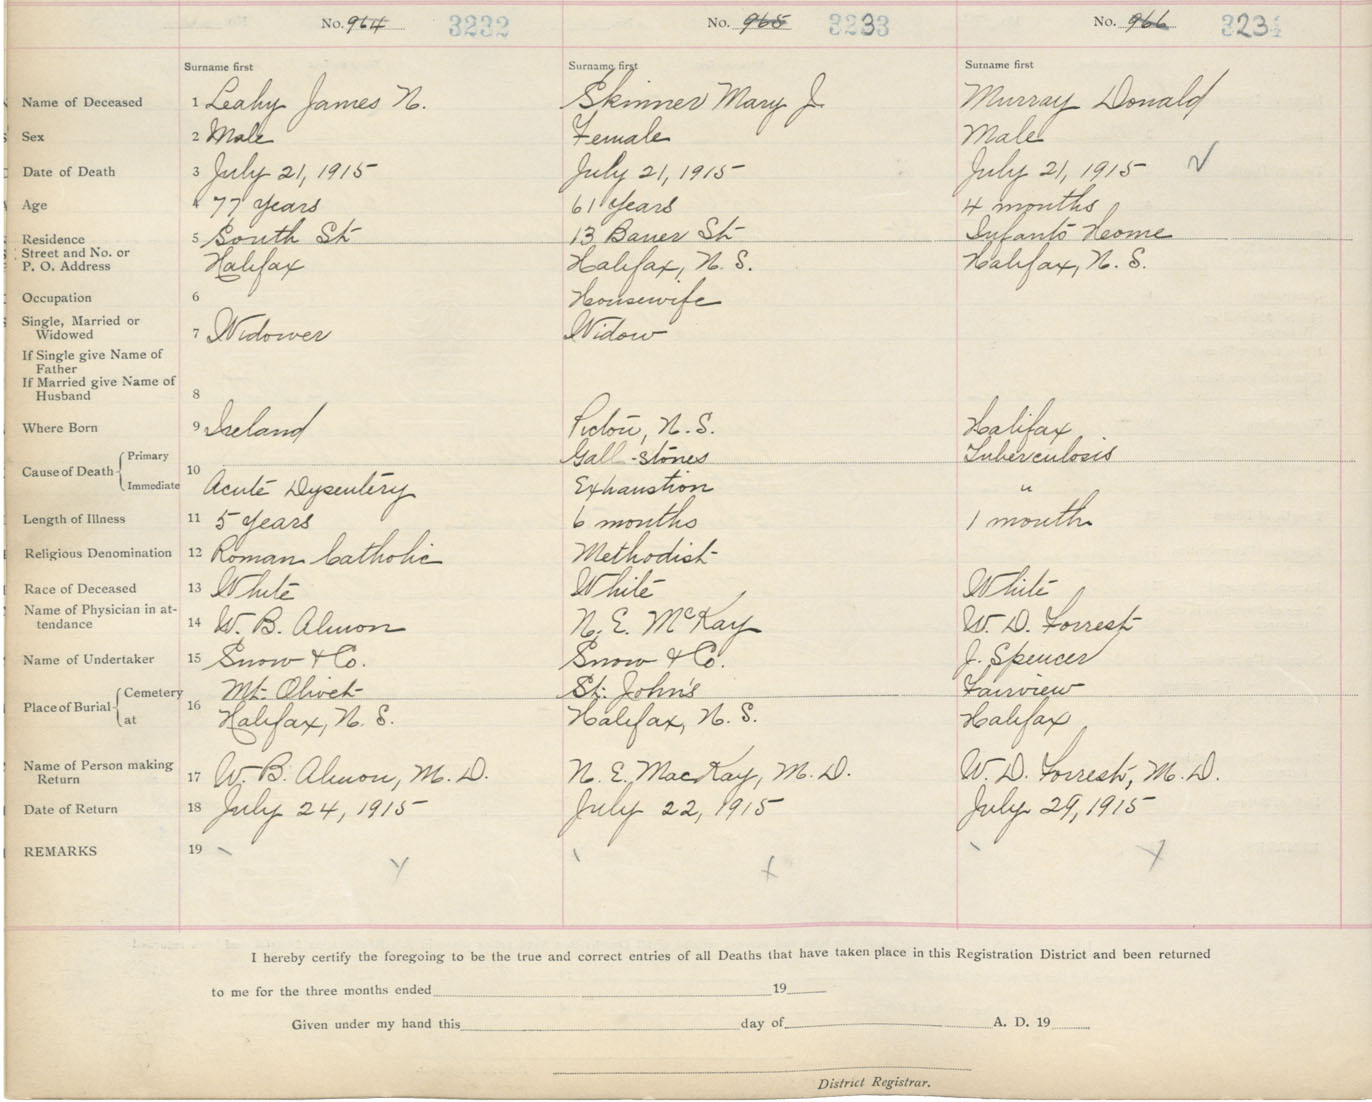 No. 964 3232 No. 965 3233 No. 966 3234
Surname first Surname first Surname first
Name of Deceased 1 Leahy James N. Skinner Mary J. Murray Donald
Sex 2 Male Female Male
Date of Death 3 July 21, 1915 July 21, 1915 July 21, 1915 ✓
Age 4 77 years 61 years 4 months
Residence 5 South St 13 Bauer St Infants Home
Street and No. or
P. O. Address Halifax Halifax, N. S. Halifax, N. S.
Occupation 6 Housewife
Single, Married or
Widowed 7 Widower Widow
If Single give Name of
Father
If Married give Name of
Husband 8
Where Born 9 Ireland Pictou, N. S. Halifax
Primary Gall-stones Tuberculosis
Cause of Death 10
Immediate Acute Dysentery Exhaustion "
Length of Illness 11 5 years 6 months 1 month
Religious Denomination 12 Roman Catholic Methodist
Race of Deceased 13 White White White
Name of Physician in at-
tendance 14 W. B. Almon N. E. McKay W. D. Forrest
Name of Undertaker 15 Snow & Co. Snow & Co. J. Spencer
Cemetery Mt. Olivet St. John's Fairview
Place of Burial 16
at Halifax, N. S. Halifax, N. S. Halifax
Name of Person making
Return 17 W. B. Almon, M. D. N. E. MacKay, M. D. W. D. Forrest, M. D.
Date of Return 18 July 24, 1915 July 22, 1915 July 29, 1915
REMARKS 19
I hereby certify the foregoing to be the true and correct entries of all Deaths that have taken place in this Registration District and been returned
to me for the three months ended 19
Given under my hand this day of A. D. 19
District Registrar.